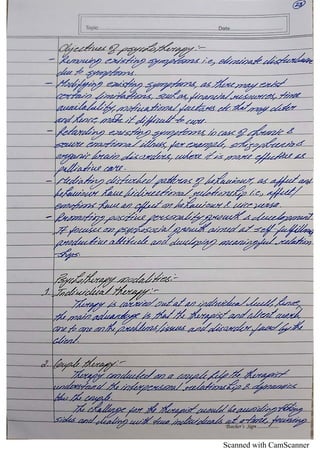 (23)
Topic Date
Objectives of psychotherapy :-
- Removing existing symptoms i.e, eliminate disturbance
due to symptoms.
- Modifying existing symptoms, as there may exist
certain limitations, such as, financial resources, time
availability, motivational factors etc that may deter
and hence, make it difficult to cure.
- Retarding existing symptoms in case of chronic &
severe emotional illness, for example, schizophrenia
organic brain disorders, where it is more effective as
palliative care.
- Mediating disturbed patterns of behaviour, as affect and
behaviour have bidirectional relationship i.e, affect/
emotions have an effect on behaviour & vice versa.
- Promoting positive personality growth & development
It focuses on psychosocial growth aimed at self fulfilling
productive attitude and developing meaningful relation
ships.
Psychotherapy modalities :-
1. Individual therapy :-
Therapy is carried out at an individual level, hence,
the main advantage is that the therapist and client work
one to one on the problems/issues and disorder faced by the
client.
2. Couple therapy :-
Therapy conducted on a couple help the therapist
understand the interpersonal relationship & dynamics
b/w the couple.
The challenge for the therapist would be avoiding taking
sides and dealing with two individuals at a time, focusing
Teacher's Sign
Scanned with CamScanner